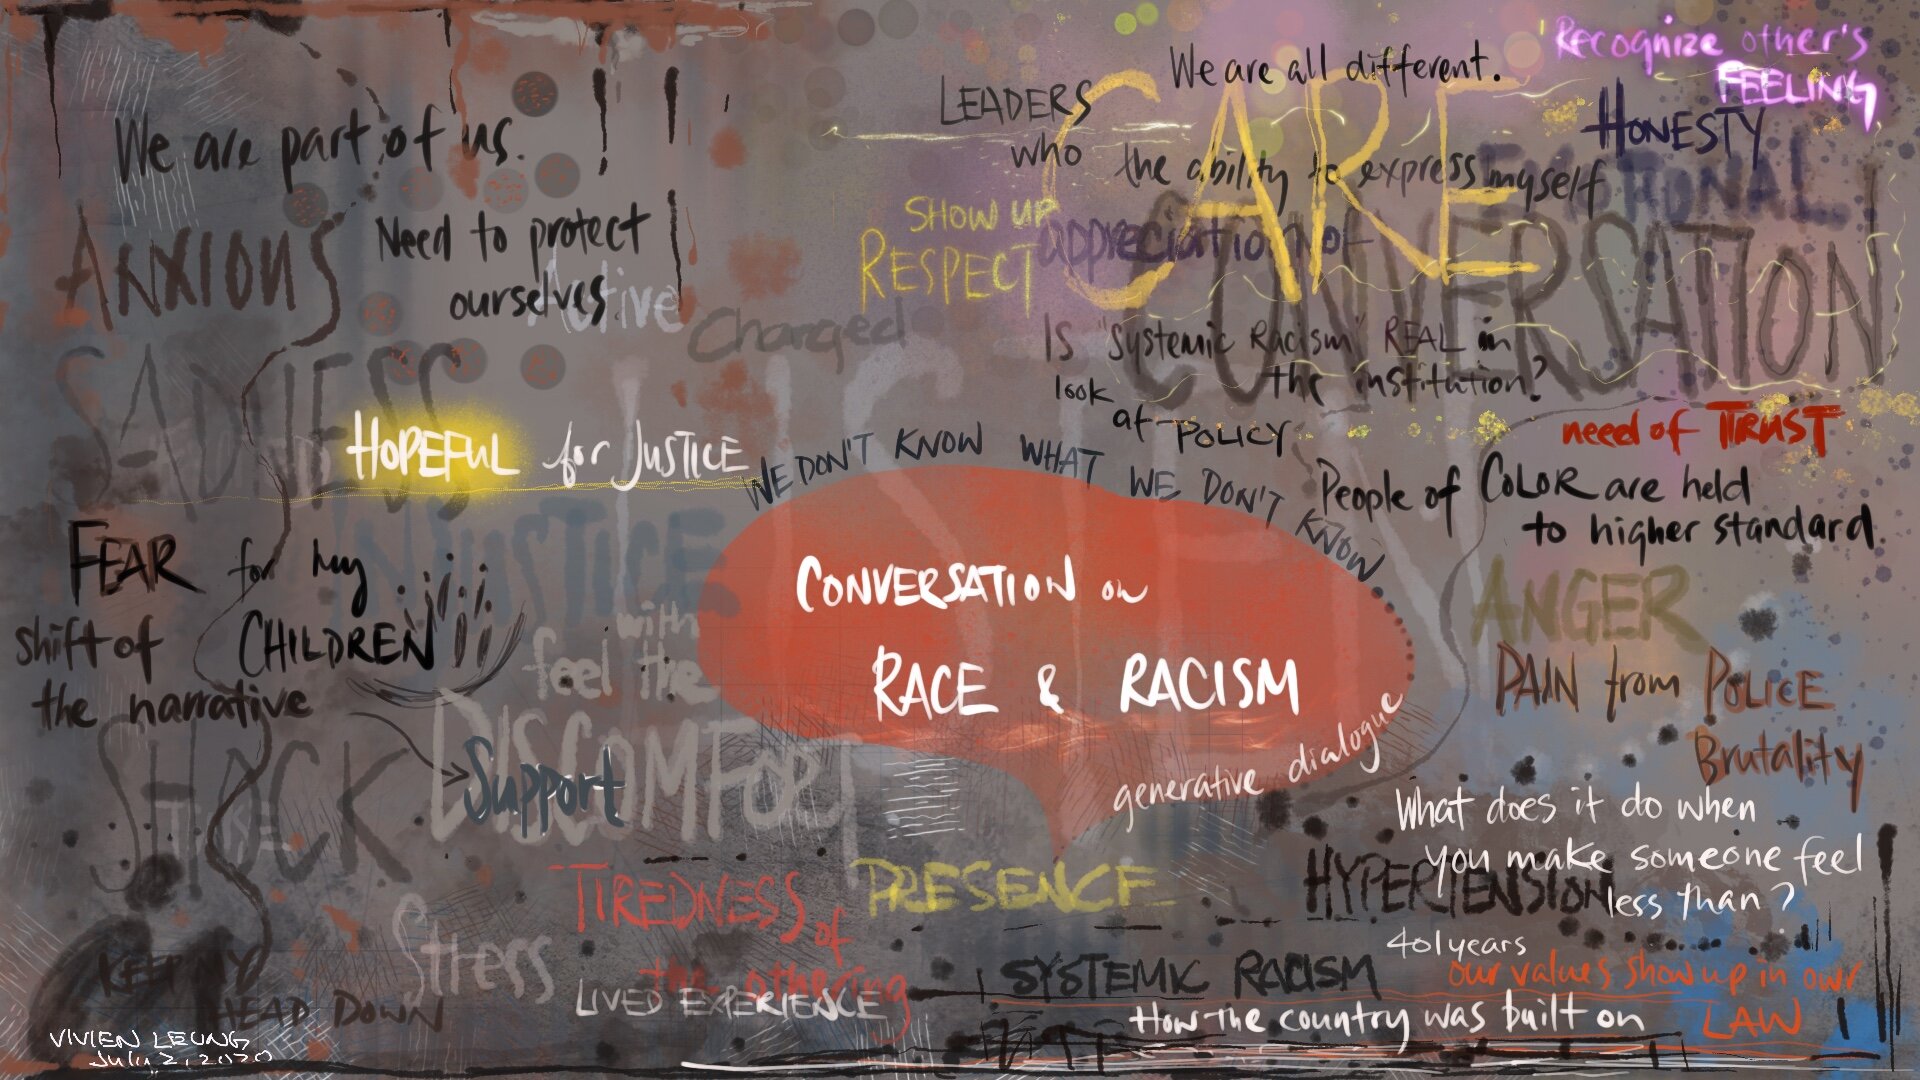 Recognize other's
FEELING
We are all different.
CARE
LEADERS
who
HONESTY
the ability to express myself
EMOTIONAL
CONVERSATION
We are part of us.
SHOW UP
RESPECT
appreciation of
ANXIOUS
Need to protect
ourselves
Active
Charged
Is "Systemic Racism" REAL in
the institution?
look
at POLICY
SADNESS
LISTEN
HOPEFUL for JUSTICE
need of TRUST
WE DON'T KNOW WHAT WE DON'T KNOW
People of COLOR are held
to higher standard.
INJUSTICE
FEAR for my
CHILDREN
shift of
the narrative
with
feel the
DISCOMFORT
CONVERSATION on
RACE & RACISM
generative dialogue
ANGER
PAIN from POLICE
Brutality
SHOCK
Support
What does it do when
you make someone feel
less than?
HYPERTENSION
TIREDNESS of
the othering
PRESENCE
Stress
LIVED EXPERIENCE
401 years
SYSTEMIC RACISM
our values show up in our
LAW
How the country was built on
KEEP MY
HEAD DOWN
VIVIEN LEUNG
July 2, 2020